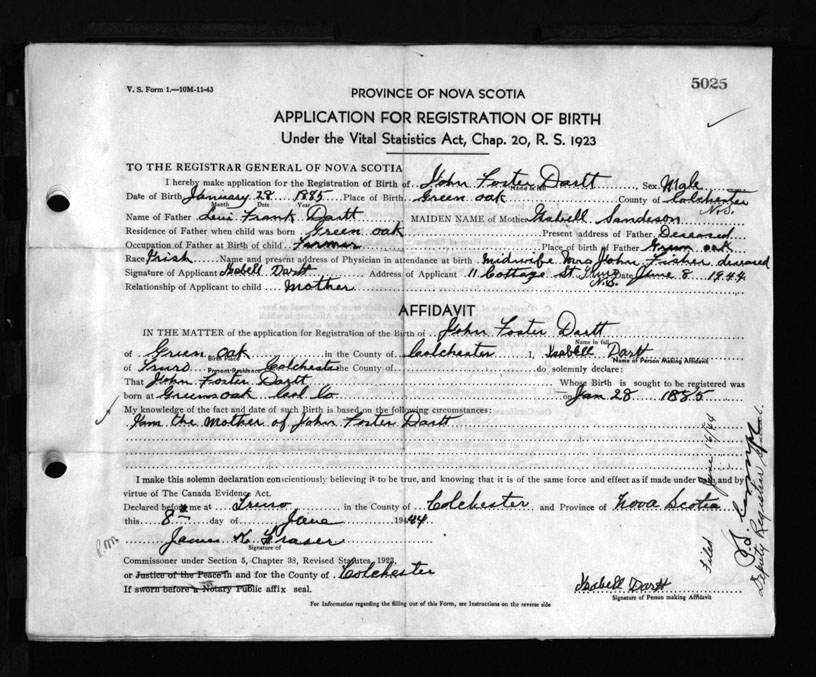 5025
V. S. Form 1.—10M-11-43
PROVINCE OF NOVA SCOTIA
APPLICATION FOR REGISTRATION OF BIRTH
Under the Vital Statistics Act, Chap. 20, R. S. 1923
TO THE REGISTRAR GENERAL OF NOVA SCOTIA
I hereby make application for the Registration of Birth of John Foster Dartt, Sex Male
Name in full
Date of Birth January 28 1885 Place of Birth Green oak County of Colchester N.S.
Month Date Year
Name of Father Frank Dartt MAIDEN NAME of Mother Sandeson
Residence of Father when child was born Green oak Present address of Father Deceased
Occupation of Father at Birth of child Farmer Place of birth of Father Green oak
Race Irish Name and present address of Physician in attendance at birth midwife Mrs John Fisher deceased
Signature of Applicant Isabell Dartt Address of Applicant 11 Cottage St. Truro N.S. Date June 8 1944
Relationship of Applicant to child Mother
AFFIDAVIT
IN THE MATTER of the application for Registration of the Birth of John Foster Dartt
Name in full
of Green oak in the County of Colchester I, Isabell Dartt
Birth Place Name of Person Making Affidavit
of Truro Colchester the County of do solemnly declare:
Present Residence
That John Foster Dartt Whose Birth is sought to be registered was
born at Greensoak Col Co on Jan 28 1885
My knowledge of the fact and date of such Birth is based on the following circumstances:
I am the Mother of John Foster Dartt
I make this solemn declaration conscientiously believing it to be true, and knowing that it is of the same force and effect as if made under oath, and by
virtue of The Canada Evidence Act.
Declared before me at Truro in the County of Colchester and Province of Nova Scotia
this 8th day of June 1944
James Fraser
Signature of
Commissioner under Section 5, Chapter 38, Revised Statutes, 1923,
or Justice of the Peace in and for the County of Colchester
If sworn before a Notary Public affix seal.
Isabell Dartt
Signature of Person making Affidavit
For Information regarding the filling out of this Form, see Instructions on the reverse side
Filed June 16/44
Deputy Registrar